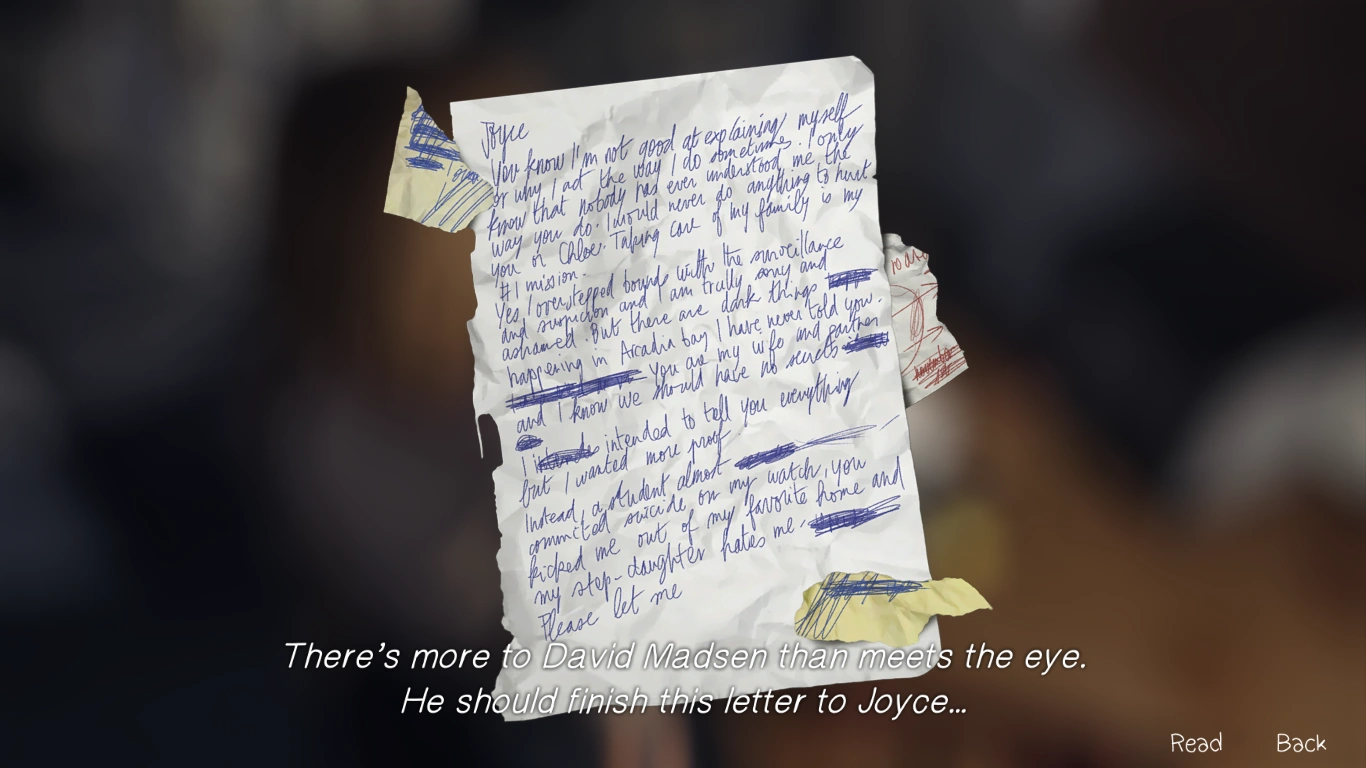 Joyce
You know I'm not good at explaining myself
or why I act the way I do sometimes. I only
know that nobody has ever understood me the
way you do. I would never do anything to hurt
you or Chloe. Taking care of my family is my
#1 mission.
Yes I overstepped bounds with the surveillance
and suspicion and I am trully sorry and
ashamed. But there are dark things
happening in Arcadia bay I have never told you.
You are my wife and partner
and I know we should have no secrets
I intended to tell you everything
but I wanted more proof
Instead, a student almost
committed suicide on my watch, you
kicked me out of my favorite home and
my step-daughter hates me.
Please let me
There's more to David Madsen than meets the eye.
He should finish this letter to Joyce...
Read Back